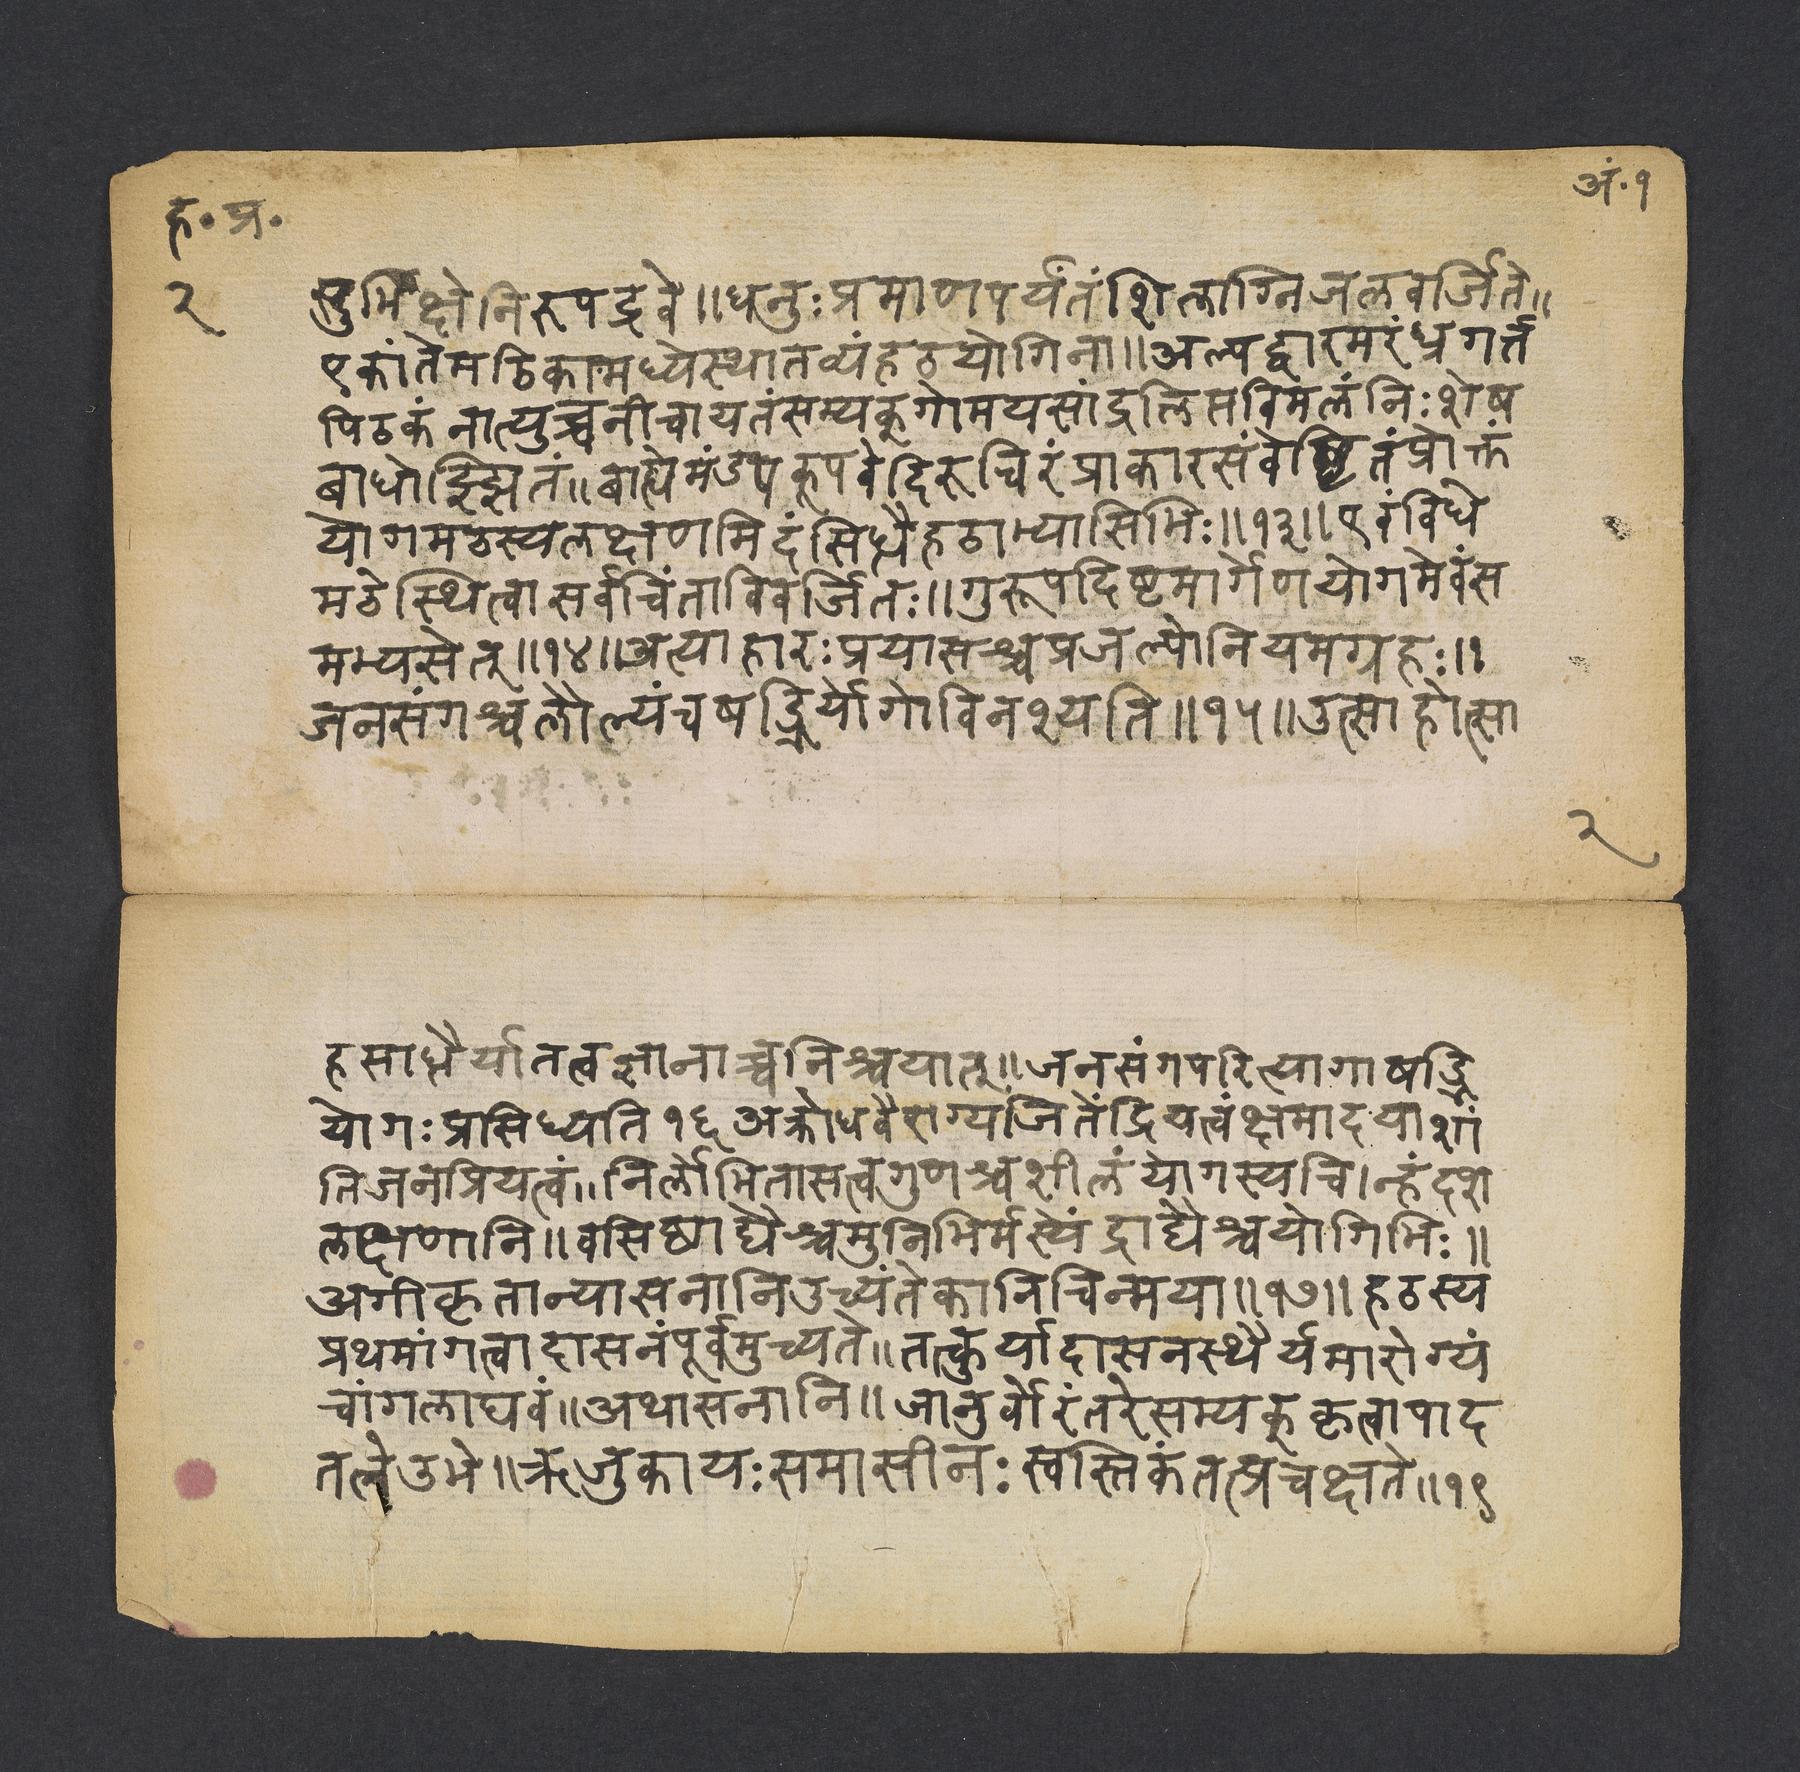 ह॰ प्र॰
अं॰१
२
सुभिक्षे निरुपद्रवे ॥ धनुः प्रमाणपर्यंतं शिलाग्निजलवर्जिते ॥
एकांते मठिकामध्ये स्थातव्यं हठयोगिना ॥ अल्पद्वारमरंध्रगर्त्त
पिठकं नात्युच्चनीचायतं सम्यक् गोमयसांद्रलिप्तविमलं निःशेष
बाधोझ्झितं ॥ बाह्ये मंडपकूपवेदिरुचिरं प्राकारसंवेष्टितं प्रोक्तं
योगमठस्य लक्षणमिदं सिध्यै हठाभ्यासिभिः ॥ १३ ॥ एवंविधे
मठे स्थित्वा सर्वचिंताविवर्जितः ॥ गुरूपदिष्टमार्गेण योगमेवं स
मभ्यसेत् ॥ १४ ॥ अत्याहारः प्रयासश्च प्रजल्पो नियमग्रहः ॥
जनसंगश्च लौल्यं च षड्भिर्योगो विनश्यति ॥ १५ ॥ उत्साहोत्सा
२
हसाध्धैर्यातत्वज्ञानाच्च निश्चयात् ॥ जनसंगपरित्यागाषड्भि
योगः प्रसिध्यति १६ अक्रोधवैराग्यजितेंद्रियत्वं क्षमादयाशां
तिजनप्रियत्वं ॥ निर्लोभितासत्वगुणश्च शीलं योगस्य चि।न्हं दश
लक्षणानि ॥ वसिष्ठाद्यैश्च मुनिभिर्मस्येंद्राद्यैश्च योगिभिः ॥
अगीकृतान्यासनानि उच्यंते कानिचिन्मया ॥ १७ ॥ हठस्य
प्रथमांगत्वादासनं पूर्वमुच्यते ॥ तत्कुर्यादासनस्थैर्यमारोग्यं
चांगलाघवं ॥ अथासनानि ॥ जानुर्वोरंतरे सम्यक् कृत्वा पाद
तले उभे ॥ ऋजुकायः समासीनः स्वस्तिकं तत्प्रचक्षते ॥ १९